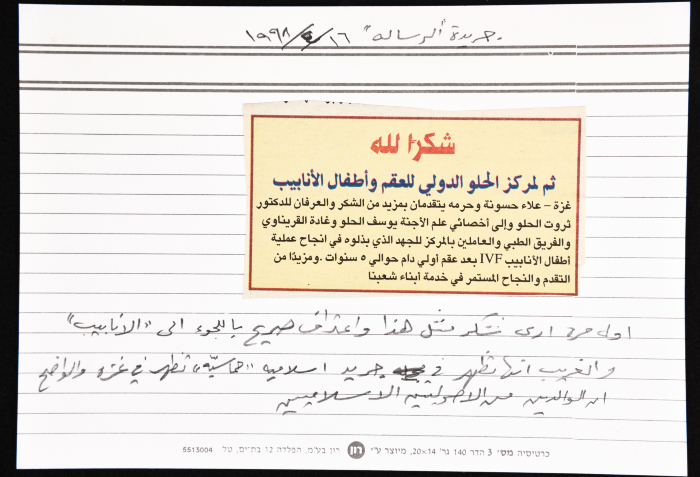 جريدة "الرساله" ١٦/٤/١٩٩٨
شكرا لله
ثم لمركز الحلو الدولي للعقم وأطفال الأنابيب
غزة - علاء حسونة وحرمه يتقدمان بمزيد من الشكر والعرفان للدكتور
ثروت الحلو وإلى أخصائي علم الأجنة يوسف الحلو وغادة القريناوي
والفريق الطبي والعاملين بالمركز للجهد الذي بذلوه في انجاح عملية
أطفال الأنابيب IVF بعد عقم أولي دام حوالي ٥ سنوات .ومزيدًا من
التقدم والنجاح المستمر في خدمة أبناء شعبنا
اول مرة ارى تشكر مثل هذا واعتراف صريح باللجوء الى "الأنابيب"
والغريب انها تظهر في جريد اسلاميه "حماسيّه" تظهر في غزه والواضح
ان الوالدين من الاصوليين الاسلاميين
כרטיסיה מס' 3 הדר 140 גר' 14×20, מיוצר ע"י רון רון בע"מ, הפלדה 12 בת-ים, טל 5513004